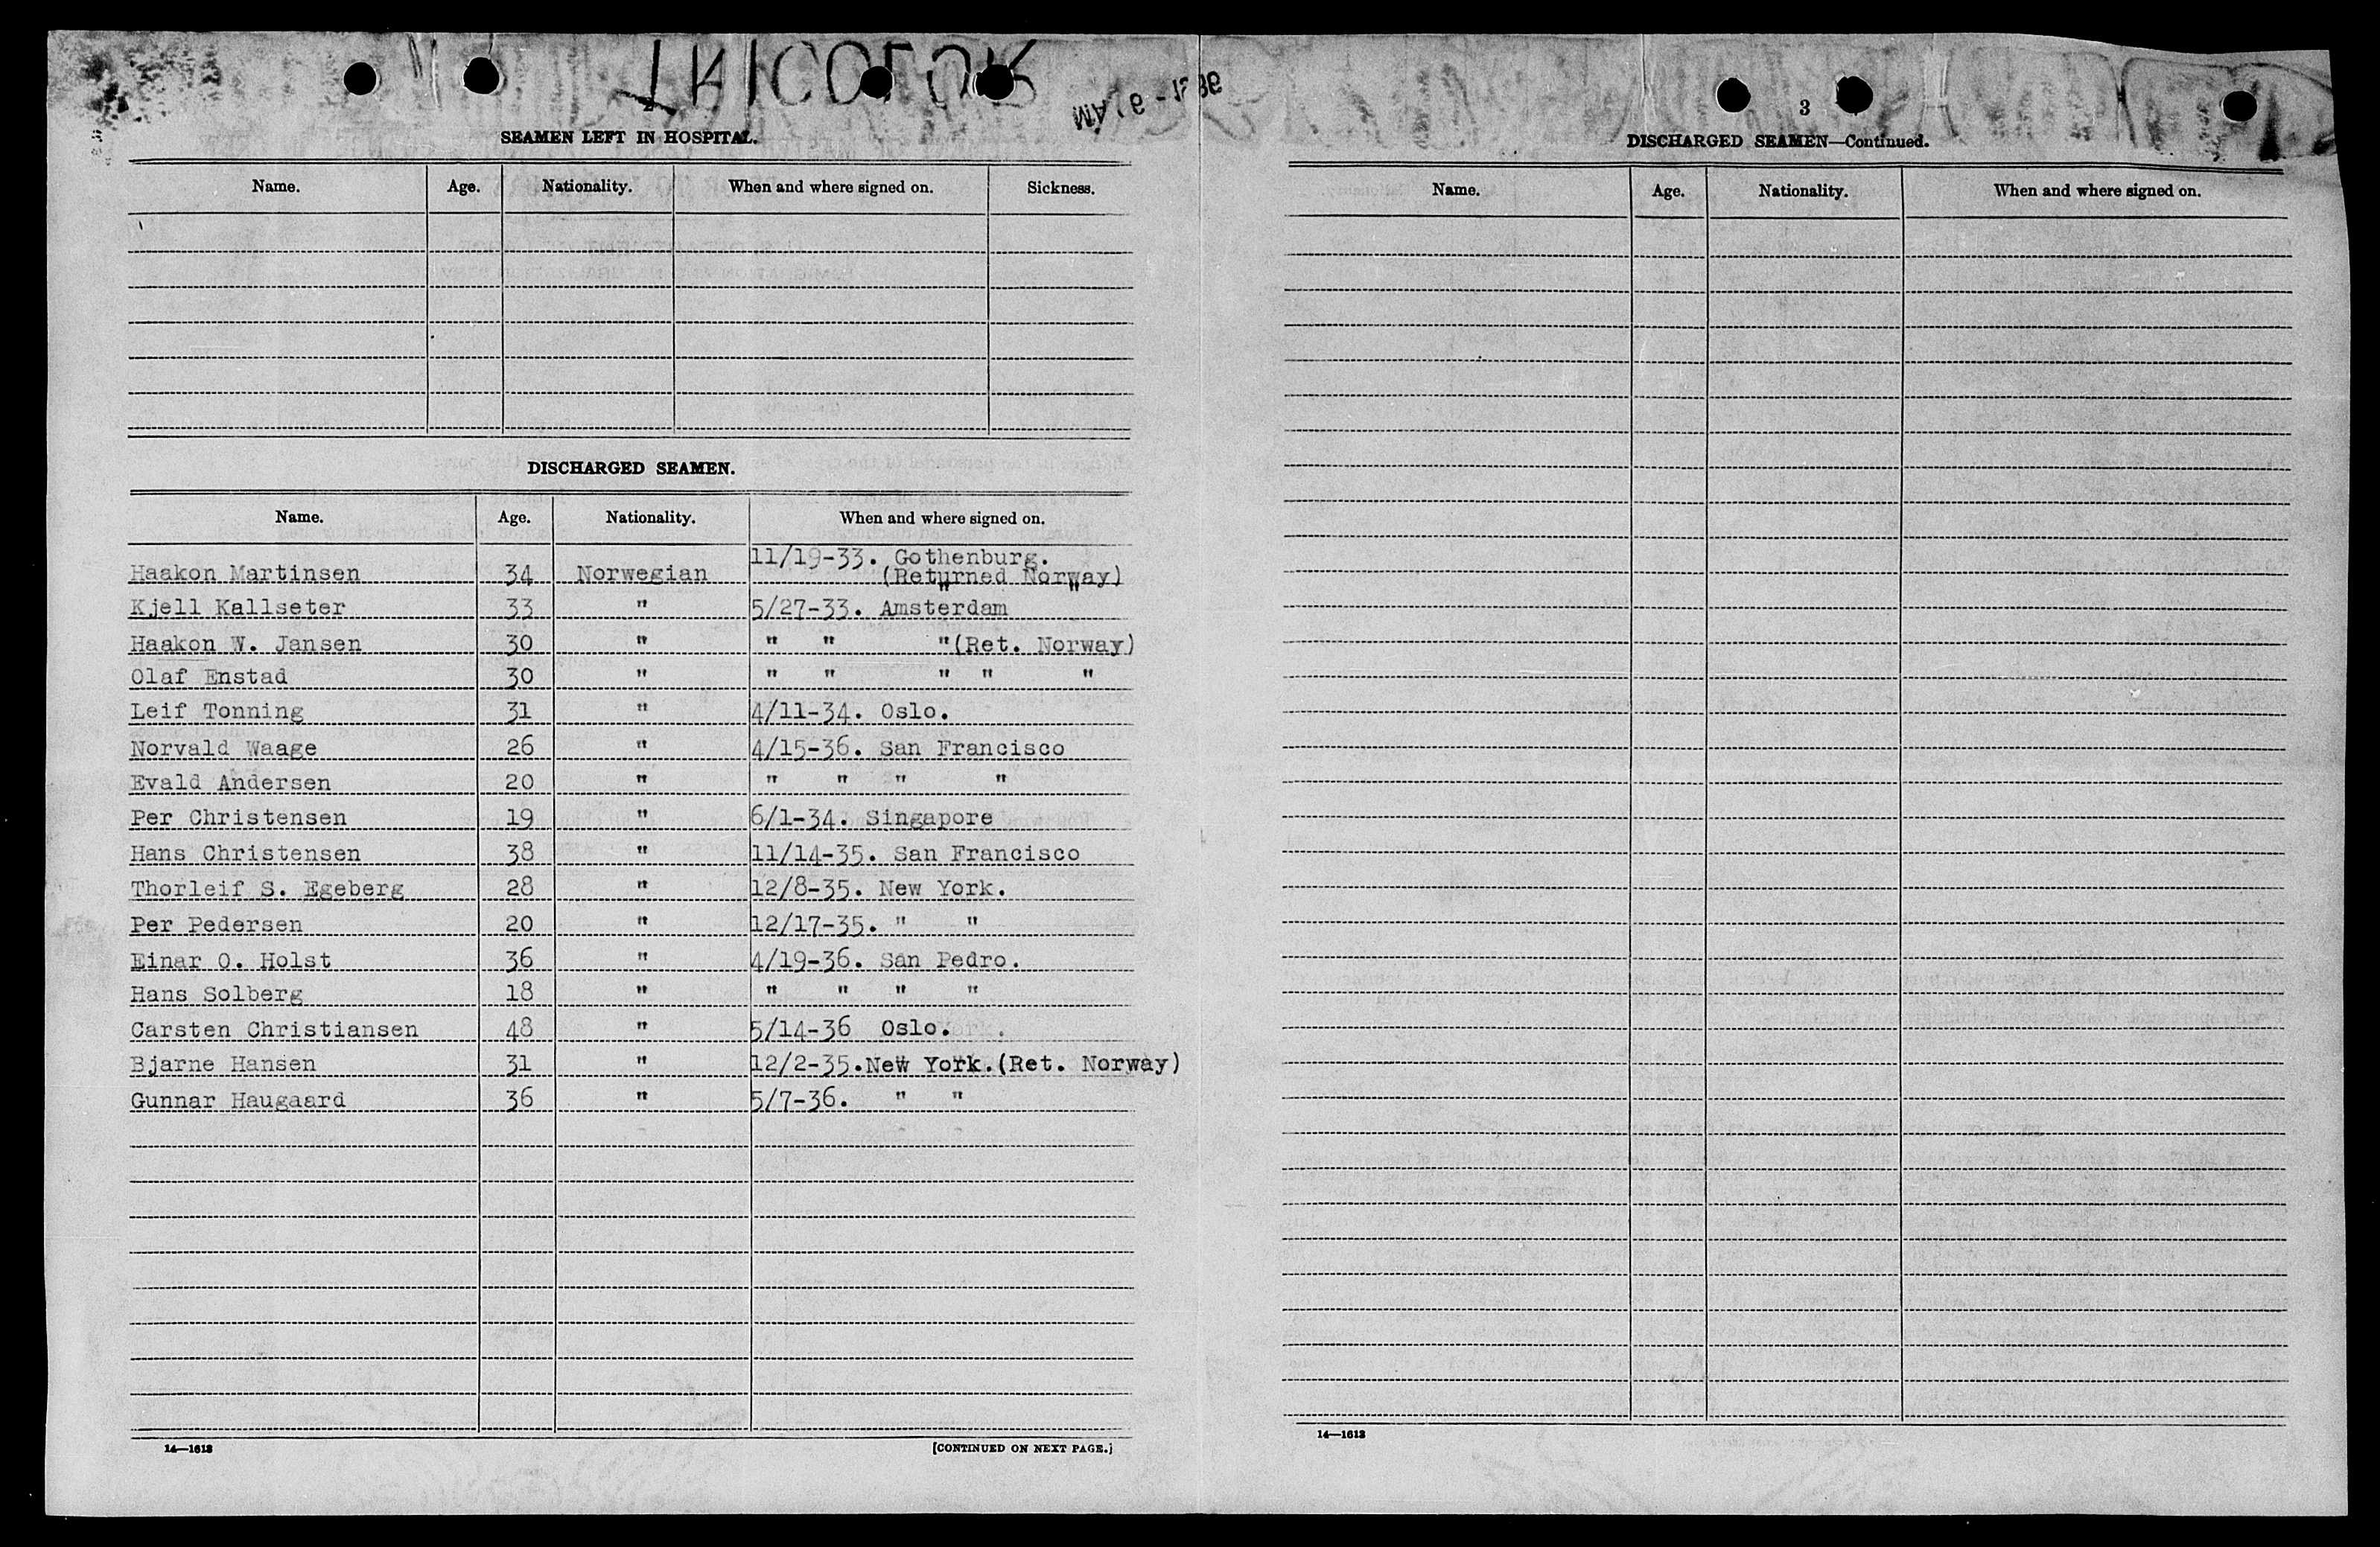 TRICOLOR
SEAMEN LEFT IN HOSPITAL.
Name. Age. Nationality. When and where signed on. Sickness.
DISCHARGED SEAMEN.
Name. Age. Nationality. When and where signed on.
11/19-33. Gothenburg.
Haakon Martinsen 34 Norwegian (Returned Norway)
" "
Kjell Kallseter 33 " 5/27-33. Amsterdam
Haakon W. Jansen 30 " " " " (Ret. Norway)
Olaf Enstad 30 " " " " " "
Leif Tonning 31 " 4/11-34. Oslo.
Norvald Waage 26 " 4/15-36. San Francisco
Evald Andersen 20 " " " " "
Per Christensen 19 " 6/1-34. Singapore
Hans Christensen 38 " 11/14-35. San Francisco
Thorleif S. Egeberg 28 " 12/8-35. New York.
Per Pedersen 20 " 12/17-35. " "
Einar O. Holst 36 " 4/19-36. San Pedro.
Hans Solberg 18 " " " " "
Carsten Christiansen 48 " 5/14-36 Oslo.
Bjarne Hansen 31 " 12/2-35. New York. (Ret. Norway)
Gunnar Haugaard 36 " 5/7-36. " "
14—1613 [CONTINUED ON NEXT PAGE.]
3
DISCHARGED SEAMEN—Continued.
Name. Age. Nationality. When and where signed on.
14—1613